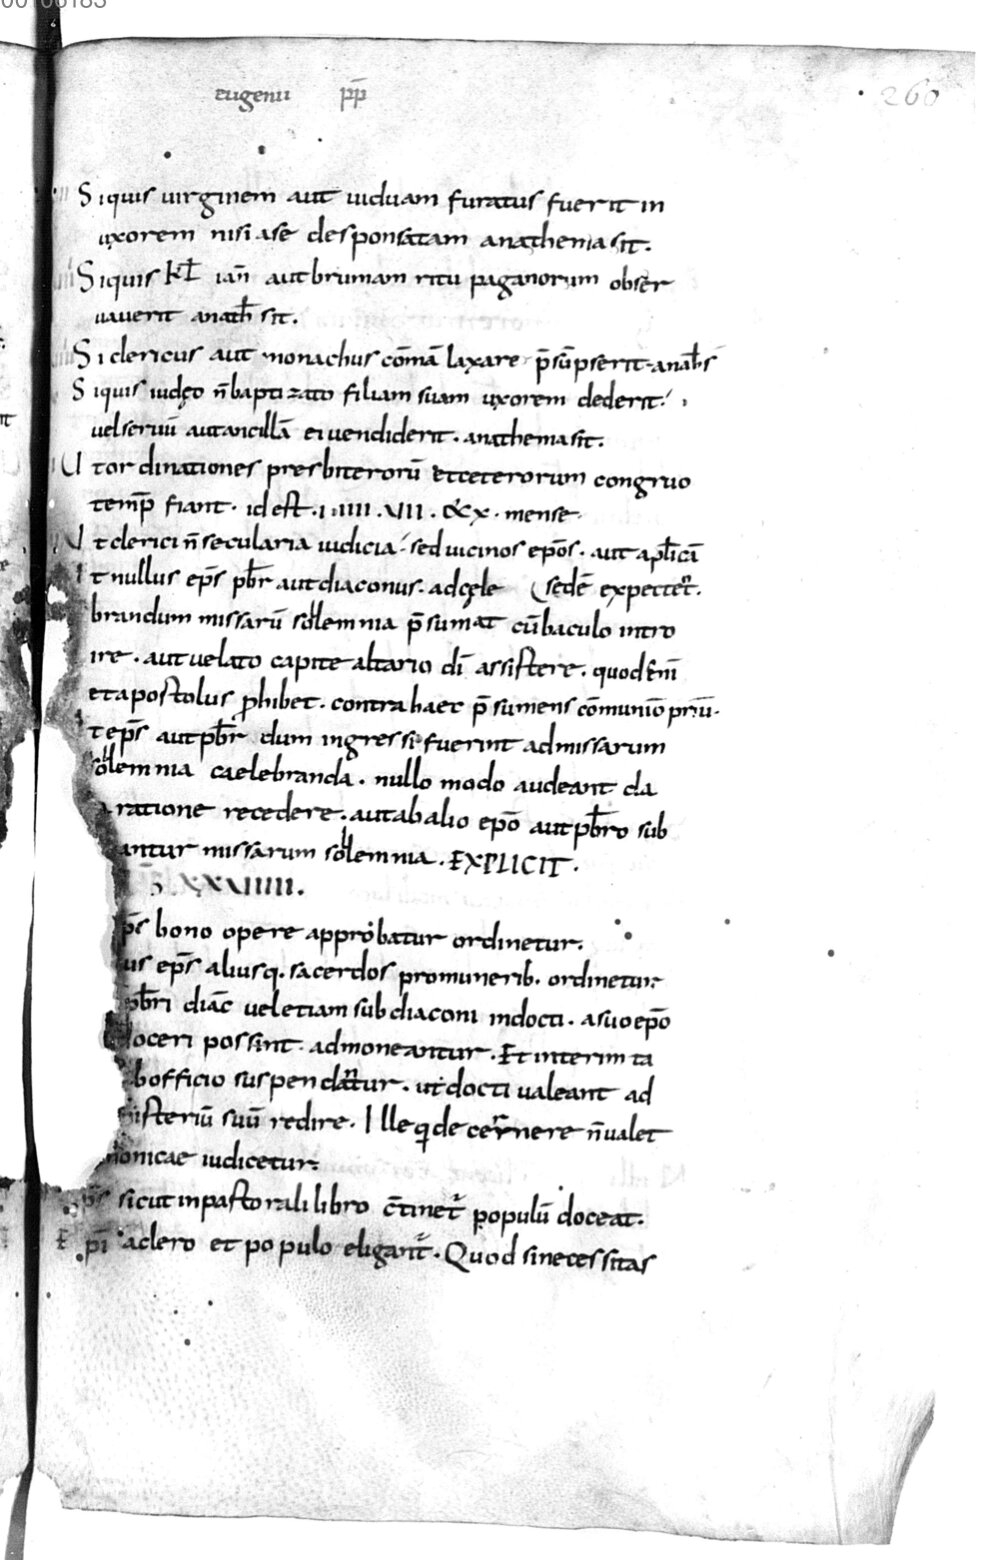 eugenii p̄p̄
260
Siquis uirginem aut uiduam furatus fuerit in
uxorem nisi ase desponsatam anathema sit.
Siquis kl̄ ian̄ aut brumam ritu paganorum obser
uauerit anath̄ sit.
Si clericus aut monachus com̄ā laxare p̄sūpserit anath̄ s̄
Siquis iudęo n̄ baptizato filiam suam uxorem dederit.
uel seruū aut ancillā ei uendiderit. anathema sit.
Ut ordinationes presbiterorū et ceterorum congruo
temp̄ fiant. id est. i. iiii. vii. & x. mense.
Ut clerici n̄ secularia iudicia. sed uicinos ep̄os. aut aplicā
Ut nullus ep̄s pb̄r aut diaconus. ad cęle sedē expectet̄.
brandum missarū sollemnia p̄sumat cū baculo intro
ire. aut uelato capite altario dī assistere. quod enī
et apostolus phibet. contra haec p̄sumens cōmuniō priū.
t ep̄s aut pb̄r dum ingressi fuerint ad missarum
sollemnia caelebranda. nullo modo audeant da
ratione recedere. aut ab alio ep̄o aut pb̄ro sub
antur missarum sollemnia. EXPLICIT.
XXXVIIII.
p̄s bono opere approbatur ordinetur.
us ep̄s aliusq. sacerdos pro munerib. ordinetur
pb̄ri diāc uel etiam subdiaconi indocti. a suo ep̄o
doceri possint. admoneantur. Et interim ta
b officio suspendantur. ut docti ualeant ad
isteriū suū redire. Ille q de cernere n̄ ualet
nonicae iudicetur.
p̄s sicut in pastorali libro c̄tinet̄ populū doceat.
pī a clero et populo eligant̄. Quod si necessitas